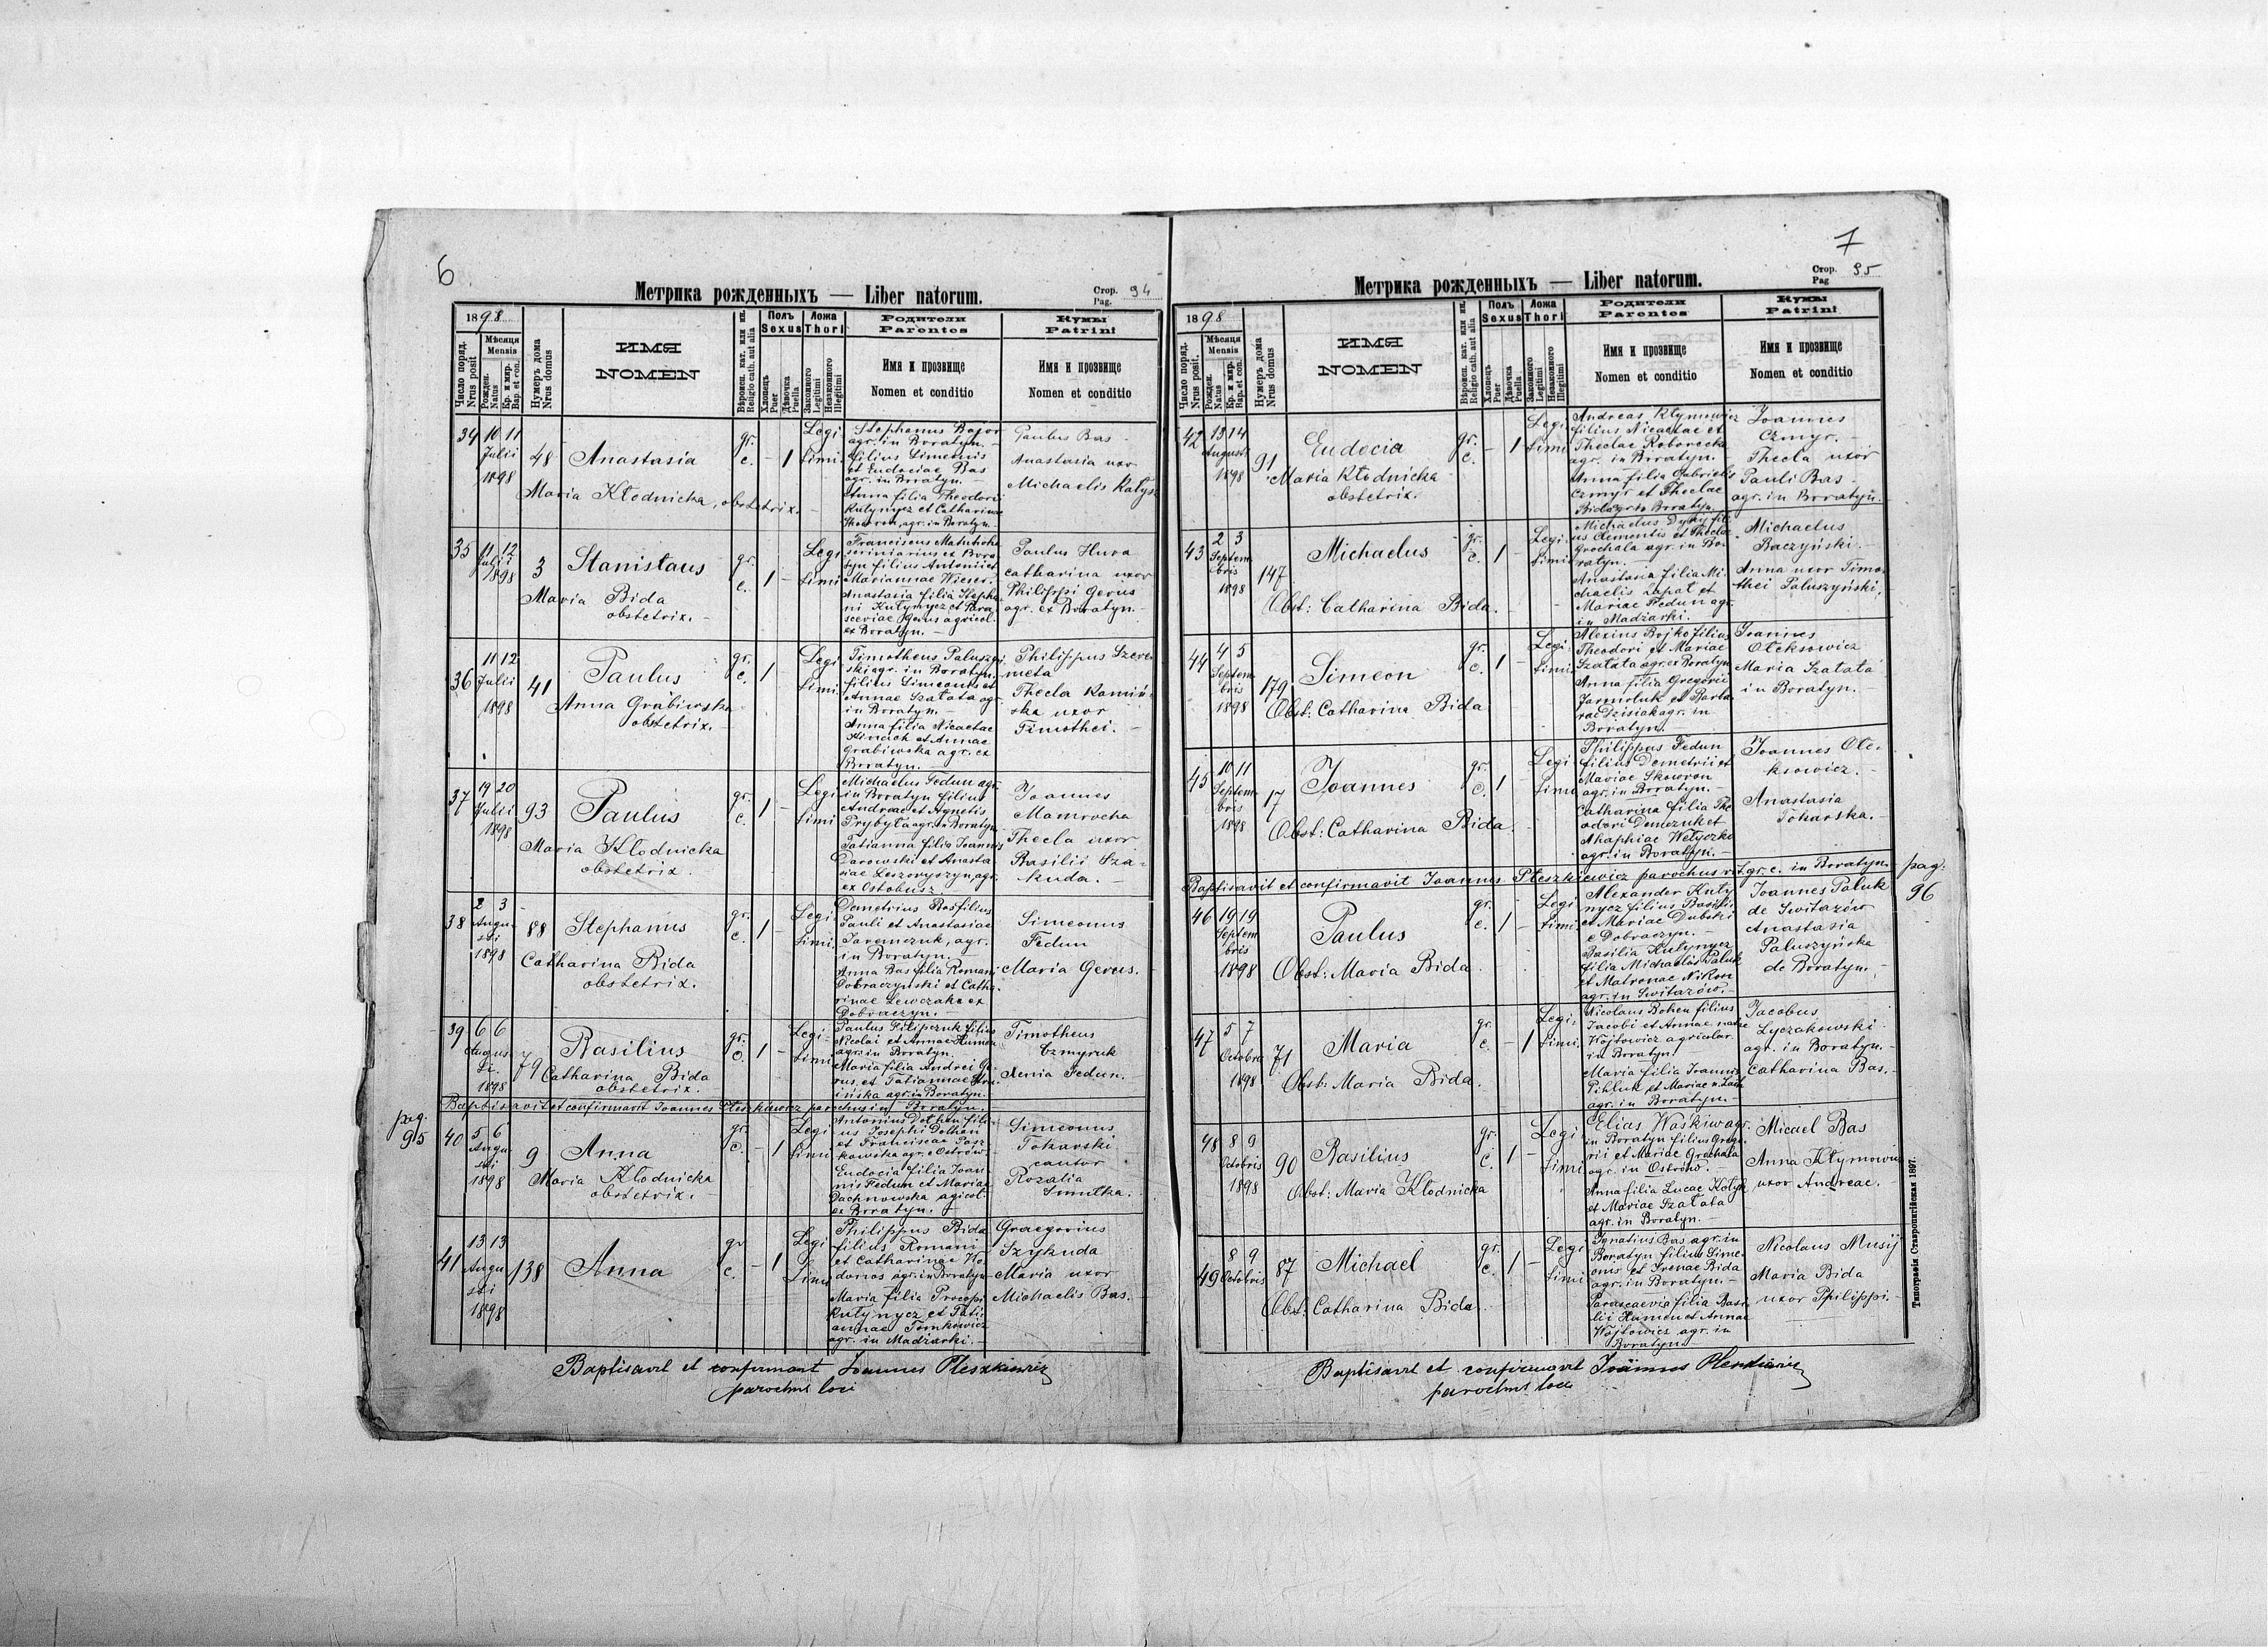 6
Метрика рожденныхъ — Liber natorum.
Стор. Pag. 94
1898
Число поряд. Nrus posit
Мѣсяця Mensis
Рожден. Natus
Кр. и мир. Bap. et con.
Нумеръ дома Nrus domus
ИМЯ
NOMEN
Вѣроисп. кат. или ин. Religio cath. aut alia
Полъ Sexus
Хлопецъ Puer
Дѣвочка Puella
Ложа Thori
Законного Legitimi
Незаконного Illegitimi
Родители
Parentes
Имя и прозвище
Nomen et conditio
Кумы
Patrini
Имя и прозвище
Nomen et conditio
34 10 11 Julii 1898 48 Anastasia gr. c. - 1 Legi timi.
Maria Kłodnicka, obstetrix.
Stephanus Bojor
agr. in Boratyn. -
filius Simeonis
et Eudociae Bas
agr. in Boratyn. -
Anna filia Theodori
Kutynycz et Catharinae
agr. in Boratyn. -
Paulus Bas -
Anastasia uxor
Michaelis
35 11 12 Julii 1898 3 Stanislaus gr. c. 1 - Legi timi
Maria Bida
obstetrix. -
Franciscus
ex Bora
tyn filius Antonii et
Mariannae
Anastasia filia Stepha
ni Kutynycz et Para
sceviae Gerus agricol.
ex Boratyn. -
Paulus Huva
Catharina uxor
Philippi Gerus
agr. ex Boratyn. -
36 11 12 Julii 1898 41 Paulus gr. c. 1 Legi timi.
Anna Grabiwska
obstetrix. -
Timotheus
agr. in Boratyn.
filius Simeonis et
Annae Szałata agr.
in Boratyn. -
Anna filia Nicaetae
Hinach et Annae
Grabiwska agr. ex
Boratyn. -
Philippus Szere
meta
Thecla Kamiń
ska uxor
Timothei. -
37 19 20 Julii 1898 93 Paulus gr. c. 1 - Legi timi
Maria Kłodnicka
obstetrix.
Michaelus Fedun agr.
in Boratyn filius
Andreae et Agnetis
Prybyła agr. in Boratyn
Tatianna filia Joannis
Darowski et Anasta
siae
ex Ostobusz
Joannes
Mamrocha
Thecla uxor
Basilii Sza-
kuda. -
38 2 3 Augu sti 1898 88 Stephanus gr. c. 1 - Legi timi.
Catharina Bida
obstetrix.
Demetrius Bas filius
Pauli et Anastasiae
agr.
in Boratyn. -
Anna Bas filia Romani
Dobraczynski et Catha
rinae
Dobraczyn. -
Simeonus
Fedun
Maria Gerus. -
39 6 6 Augus ti. 1898 79 Basilius gr. c. 1 - Legi- timi
Catharina Bida
obstetrix. -
Paulus Filipczuk filius
Nicolai et Annae
agr. in Boratyn.
Maria filia Andrei Ge
rus et Tatiannae
agr. in Boratyn. -
Timotheus
Czmyruk
Xenia Fedun. -
Baptisavit et confirmavit Joannes Pleszkiewicz parochus in Boratyn. -
pag. 95
40 5 6 Augu sti 1898 9 Anna gr. c. - 1 Legi timi
Maria Kłodnicka
obstetrix. -
Antonius Dolhen fili-
us Josephi Dolhan
et Franciscae Pasz
kowska agr. e Ostrów. -
Eudocia filia Joan
nis Fedun et Mariae
Dachnowska agicol.
ex Boratyn. -
Simeonus
Tokarski
cantor
Rozalia
Smutka.
41 13 13 Augu sti 1898 138 Anna gr c. - 1 Legi timi
Philippus Bida
filius Romani
et Catharinae
agr. in Boratyn
Maria filia Procopi
Kutynycz et Tati-
annae Tomkowicz
agr. in Madżarki. -
Graegorius
Szykuda
Maria uxor
Michaelis Bas. -
Baptisavit et confirmavit Joannes Pleszkiewicz
parochus loci
7
Метрика рожденныхъ — Liber natorum.
Стор. Pag 95
1898
Число поряд. Nrus posit.
Мѣсяця Mensis
Рожден. Natus
Кр. и мир. Bap. et con.
Нумеръ дома Nrus domus
ИМЯ
NOMEN
Вѣроисп. кат. или ин. Religio cath. aut alia
Полъ Sexus
Хлопецъ Puer
Дѣвочка Puella
Ложа Thori
Законного Legitimi
Незаконного Illegitimi
Родители
Parentes
Имя и прозвище
Nomen et conditio
Кумы
Patrini
Имя и прозвище
Nomen et conditio
42 13 14 Augusti 1898 91 Eudocia gr. c. - 1 Legi timi
Maria Kłodnicka
obstetrix.
Andreas Kłymowicz
filius Nicaetae et
Theclae
agr. in Boratyn.
Anna filia Gabrielis
Czmyr et Theclae
Bida agr. in Boratyn.
Joannes
Czmyr. -
Thecla uxor
Pauli Bas -
agr. in Boratyn. -
43 2 3 Septem bris 1898 147 Michaelus gr. c. 1 - Legi. timi
Obst: Catharina Bida. -
Michaelus fili
us Clementis et Thecla
Grochala agr. in Bo
ratyn. -
Anastasia filia Mi-
chaelis Łapat et
Mariae Fedun agr.
in Madżarki. -
Michaelus
Baczyński. -
Anna uxor Timo-
thei Paluszyński.
44 4 5 Septem bris 1898 179 Simeon gr. c. 1 - Legi timi
Obst: Catharina Bida
Alexius Bojko filius
Theodori et Mariae
Szałata agr. ex Boratyn
Anna filia Gregorii
et Barba
rae agr. in
Boratyn. -
Joannes
Oleksowicz
Maria Szałata
in Boratyn. -
45 10 11 Septem bris 1898 17 Joannes gr. c. 1 - Legi timi
Obst: Catharina Bida.
Philippus Fedun
filius Demetrii et
Mariae Skowron
agr. in Boratyn. -
Catharina filia The
odori Demczuk et
Ahaphiae Wełyczko
agr. in Boratyn. -
Joannes Ole-
ksowicz. -
Anastasia
Tokarska. -
Baptisavit et confirmavit Joannes Pleszkiewicz parochus rit. gr. c. in Boratyn.
pag: 96
46 19 19 Septem bris 1898 Paulus gr. c. 1 - Legi timi.
Obst: Maria Bida
Alexander Kuty
nycz filius Basilii
et Mariae Dubski
e Dobraczyn. -
Basilia Kutynycz
filia Michaelis Paluk
et Matronae Nikon
agr. in Switazów. -
Joannes Paluk
de Switazów
Anastasia
Paluszyńska
de Boratyn. -
47 5 7 Octobris 1898 71 Maria gr. c. - 1 Legi. timi.
Obst: Maria Bida.
Nicolaus Bohen filius
Jacobi et Annae natae
Wojtowicz agricolar.
in Boratyn
Maria filia Joannis
et Mariae n.
agr. in Boratyn. -
Jacobus
Łyczakowski
agr. in Boratyn. -
Catharina Bas. -
48 8 9 Octobris 1898 90 Basilius gr. c. 1 - Legi timi
Obst: Maria Kłodnicka
Elias Waśkiw agr.
in Boratyn filius Grego-
rii et Mariae Grochala
agr. in Ostrów. -
Anna filia Lucae
et Mariae Szałata
agr. in Boratyn. -
Micael Bas
Anna Kłymowicz
uxor Andreae. -
49 8 9 Octobris 87 Michael gr. c. 1 - Legi timi
Obst: Catharina Bida.
Ignatius Bas agr. in
Boratyn filius Sime-
onis et Irenae Bida
agr. in Boratyn. -
Parascaevia filia Basi-
lii Humen et Annae
Wojtowicz agr. in
Boratyn. -
Nicolaus Musij
Maria Bida
uxor Philippi. -
Baptisavit et confirmavit Joannes Pleszkiewicz
parochus loci
Типографія Ставропигійская 1897.